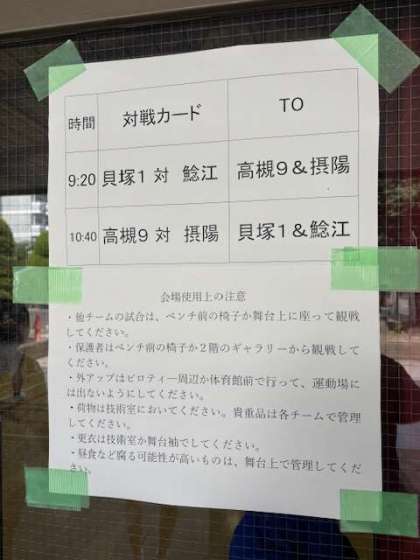 時間 対戦カード TO
9:20 貝塚1 対 鯰江 高槻9&摂陽
10:40 高槻9 対 摂陽 貝塚1&鯰江
会場使用上の注意
・他チームの試合は、ベンチ前の椅子か舞台上に座って観戦
してください。
・保護者はベンチ前の椅子か２階のギャラリーから観戦して
ください。
・外アップはピロティー周辺か体育館前で行って、運動場に
は出ないようにしてください。
・荷物は技術室においてください。貴重品は各チームで管理
してください。
・更衣は技術室か舞台袖でしてください。
・昼食など腐る可能性が高いものは、舞台上で管理してくだ
さい。